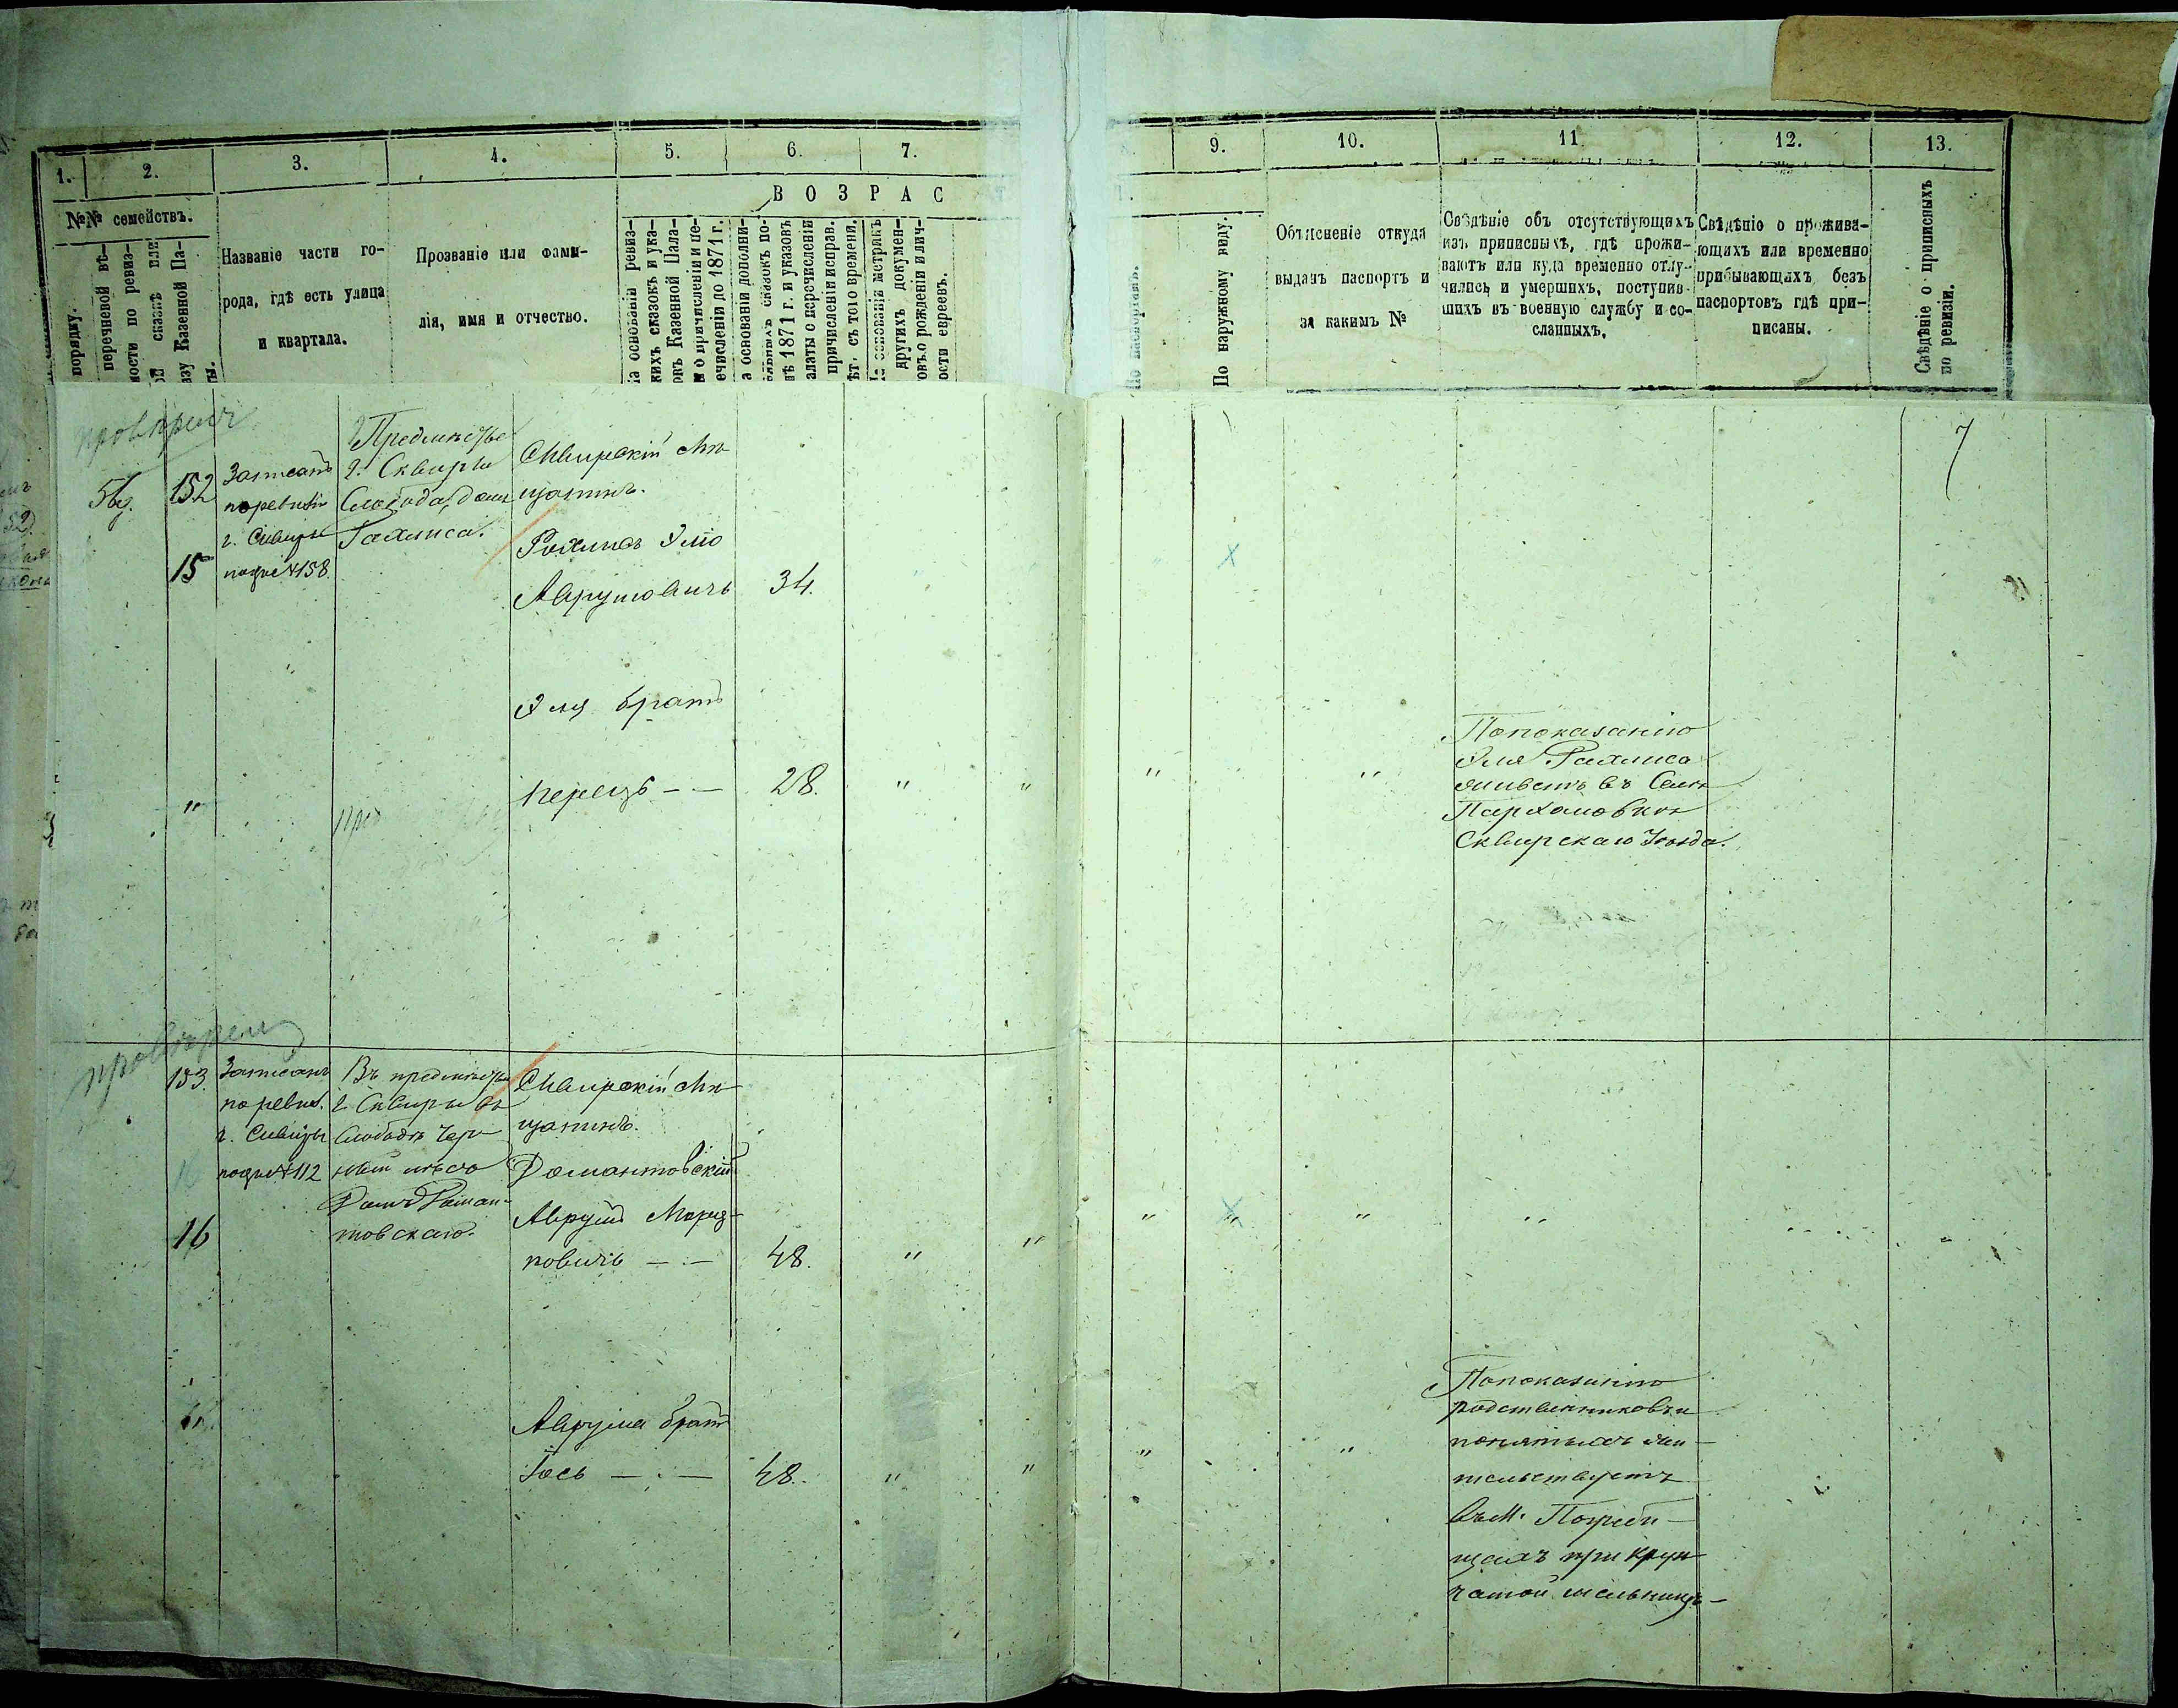 1.
2.
3.
4.
5.
6.
7.
№№ семействъ.
порядку.
перечневой вѣ-
мости по ревиз-
ой сказкѣ или
азу Казенной Па-
ты.
Названіе части го-
рода, гдѣ есть улица
и квартала.
Прозваніе или фами-
лія, имя и отчество.
ВОЗРАС
на основаніи ревиз-
скихъ сказокъ и ука-
зовъ Казенной Пала-
ы о причисленіи и пе-
речисленіи до 1871 г.
а основаніи дополни-
сказокъ по-
лѣ 1871 г. и указовъ
алаты о перечисленіи
причисленіи исправ.
ѣт. съ того времени.
На основаніи метрикъ
другихъ докумен-
товъ о рожденіи и лич-
ности евреевъ.
9.
10.
11.
12.
13.
По паспортамъ.
По наружному виду.
Объясненіе откуда
выданъ паспортъ и
за какимъ №
Свѣдѣніе объ отсутствующихъ
изъ приписныхъ, гдѣ прожи-
ваютъ или куда временно отлу-
чились и умершихъ, поступив-
шихъ въ военную службу и со-
сланныхъ.
Свѣдѣніе о прожива-
ющихъ или временно
прибывающихъ безъ
паспортовъ гдѣ при-
писаны.
Свѣдѣніе о приписныхъ
по ревизіи.
7
провѣрен
152
15
Записанъ
по ревизіи
г. Сквиры
подъ №158.
Предмѣстье
г. Сквиры
Слобода, домъ
Рахлиса.
Сквирскій мѣ-
щанинъ.
Рохлисъ Элю
Аврумовичъ 34.
Эля братъ
Перецъ - - 28. " "
" "
По показанію
Эля Рахлиса
живетъ въ Селѣ
Пархомовкѣ
Сквирскаго Уѣзда.
провѣрен
153.
16
Записанъ
по ревиз.
г. Сквиры
подъ №112
Въ предмѣстьи
г. Сквиры въ
Слободѣ Чер-
Домъ Роман-
товскаго.
Сквирскій мѣ-
щанинъ.
Романтовскій
АврумъМорд-
ковичъ - - 48. " "
" "
Аврума братъ
Іось - - 48. " "
" "
По показанію
родственниковъ и
понятыхъ жи-
тельствуетъ
въ М. Погреби-
щахъ при круп-
чатой мельницѣ-